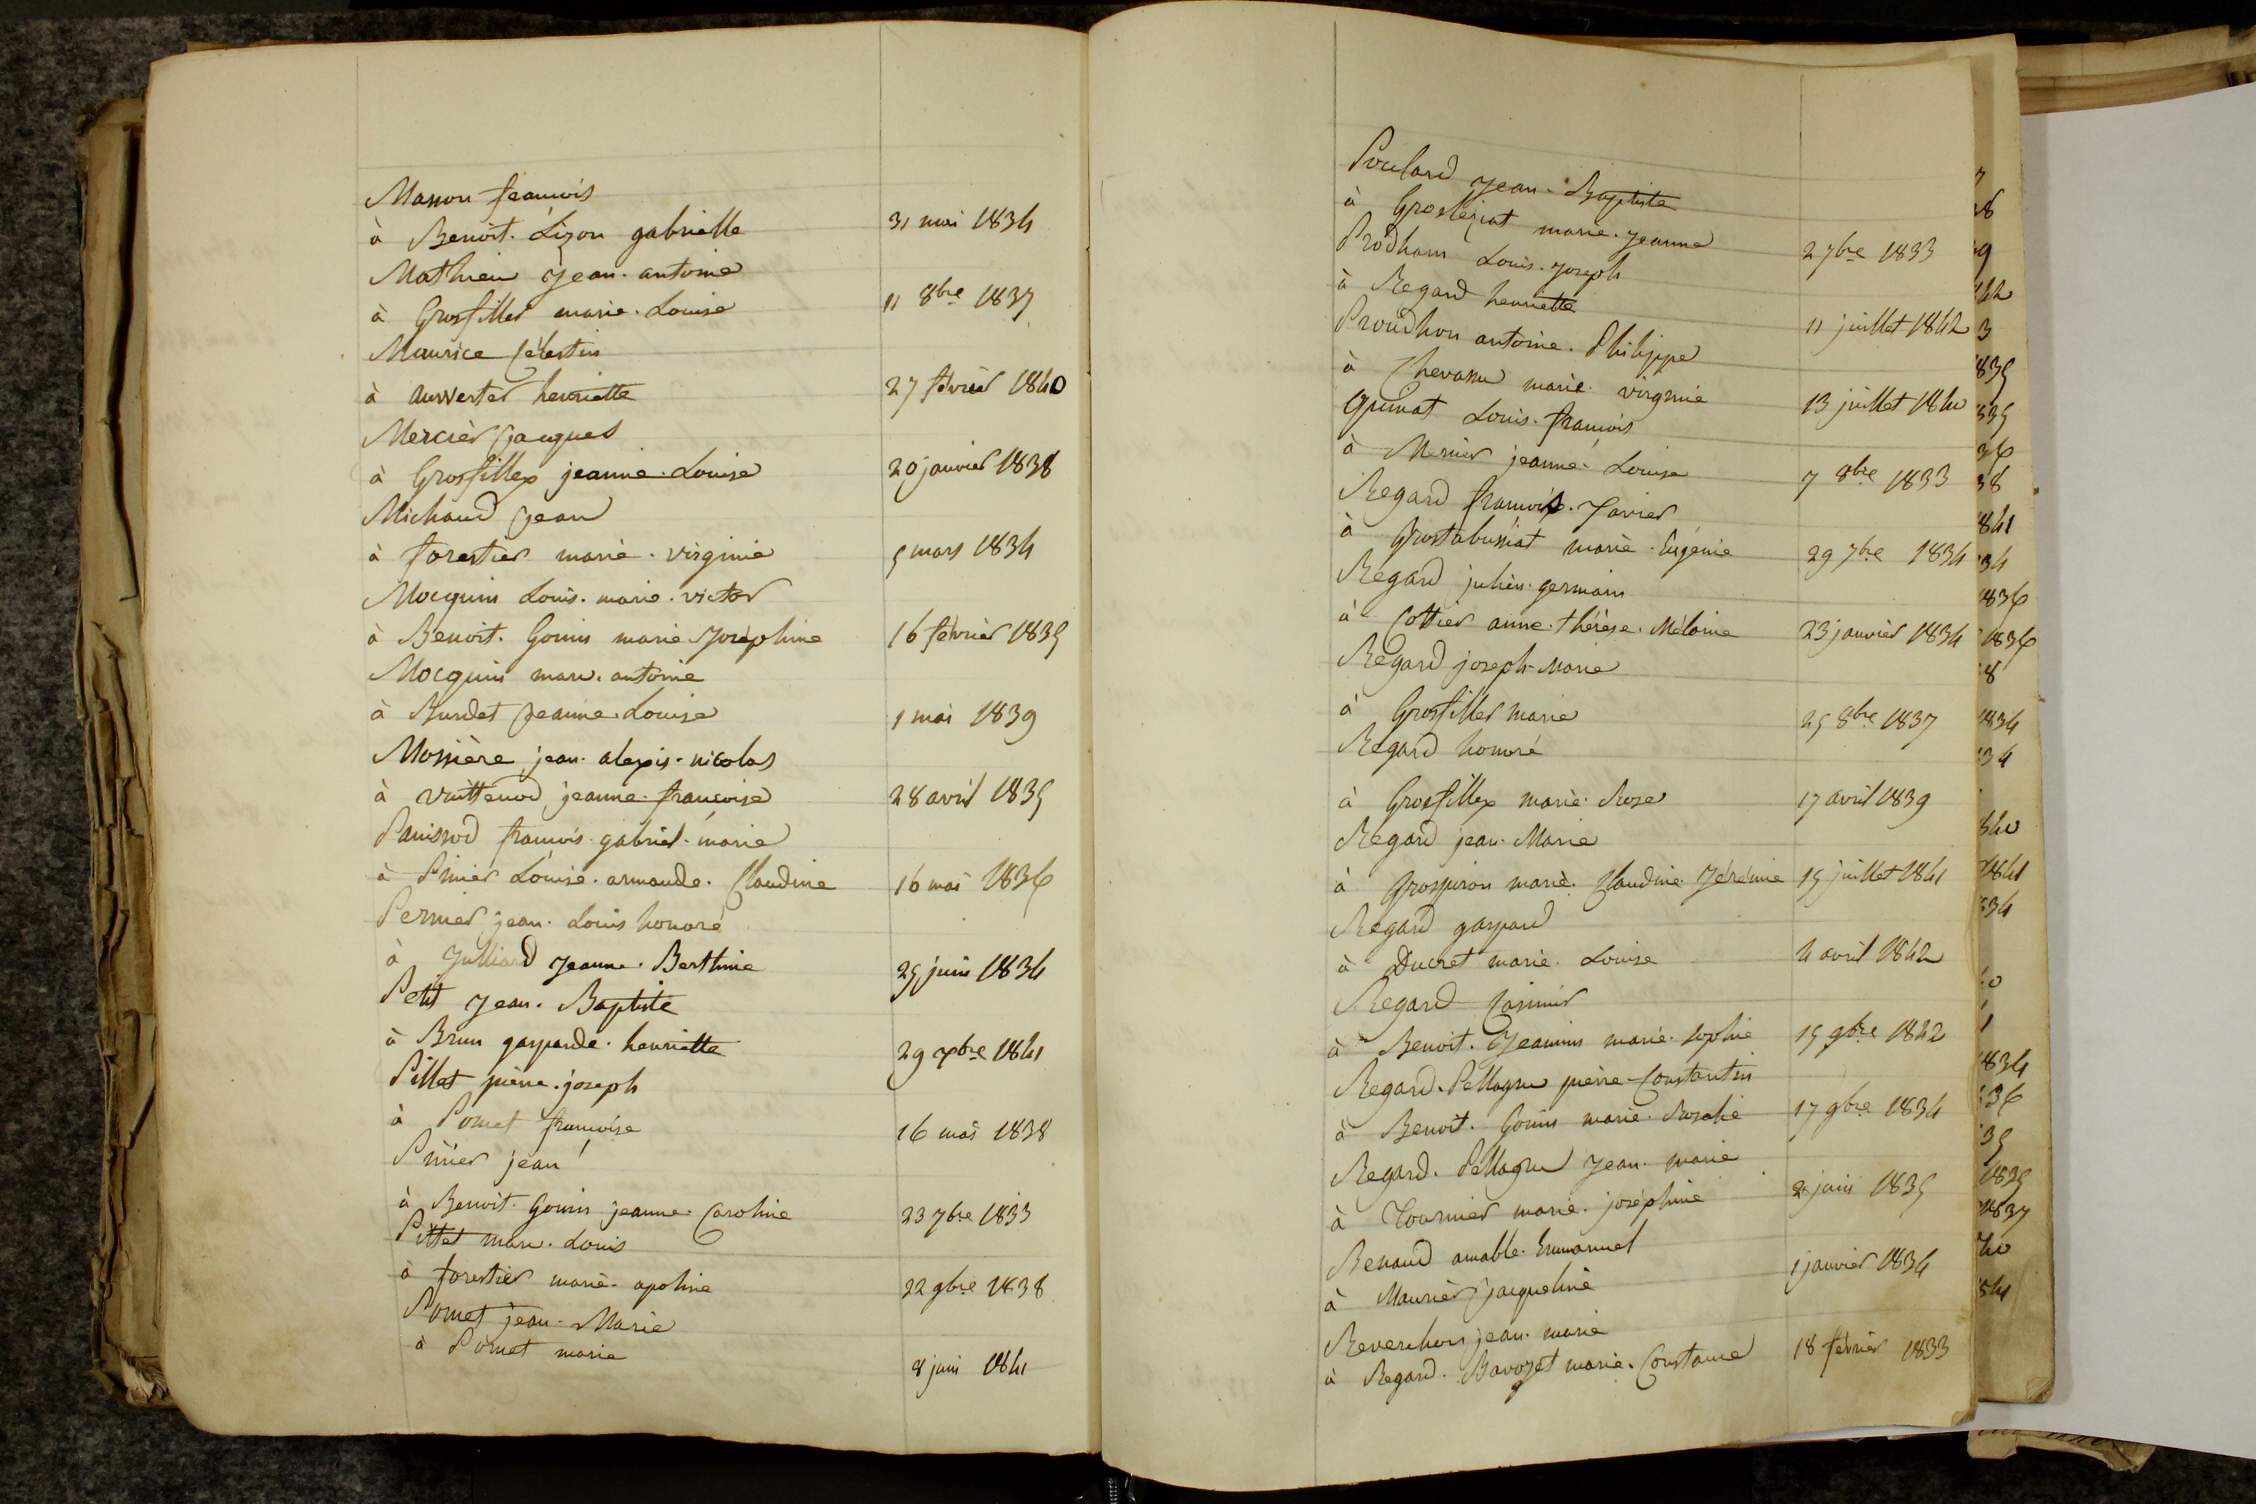 Masson françois
à Benoit. Lizon gabrielle 31 mai 1834
Mathieu Jean. antoine
à Grosfillex marie. Louise 11 8bre 1837
Maurice Célestin
à Auwerter henriette 27 février 1840
Mercier Jacques
à Grosfillex jeanne. Louise 20 janvier 1838
Michaud Jean
à forestier marie. virginie 5 mars 1834
Mocquin Louis. marie. victor
à Benoit. Gonin marie Joséphine 16 février 1835
Mocquin marc. antoine
à Burdet Jeanne Louise 1 mai 1839
Mossière jean. alexis. nicolas
à Vuittenod jeanne. françoise 28 avril 1835
Panissod françois. gabriel. marie
à Prnier Louise. armande. Claudine 16 mai 1836
Perrier jean. Louis honoré
à Julliard Jeanne. Berthine 25 juin 1834
Petit Jean. Baptiste
à Brun gasparde. henriette 29 xbre 1841
Pillet pierre. joseph
à Pomet françoise 16 mai 1838
Prnier jean
à Benoit. Gonin jeanne. Caroline 23 7bre 1833
Pittet marc. Louis
à forestier marie. apoline 22 9bre 1838
Pomet jean. Marie
à Pomet marie 8 juin 1841
Poulard Jean. Baptiste
à Grostéziat marie. jeanne 2 7bre 1833
Prodham Louis. Joseph
à Regard henriette 11 juillet 1842
Proudhon antoine. Philippe
à Chevassu marie. virginie 13 juillet 1840
Louis. françois
à Mermier jeanne. Louise 7 8bre 1833
Regard françois. Xavier
à Grostabussiat marie. Eugénie 29 7bre 1834
Regard julien. germain
à Cottier anne. thérèse. Mélanie 23 janvier 1834
Regard joseph-Marie
à Grosfillex marie 25 8bre 1837
Regard honoré
à Grosfillex marie. Rose 17 avril 1839
Regard jean. Marie
à Grospiron marie. Claudine. Jérémie 15 juillet 1841
Regard gaspard
à Ducret marie. Louise 4 avril 1842
Regard Casimir
à Benoit. Jeannin marie. sophie 15 9bre 1842
Regard. Pellagru pierre. Constantin
à Benoit. Gonin marie. Rosalie 17 9bre 1834
Regard. Pellagru Jean. marie
à Tournier marie. joséphine juin 1835
Renaud amable. Emmanuel
à Maurier Jacqueline 1 janvier 1834
Reverchon jean. marie
à Regard. Bavozet marie. Constance 18 février 1833